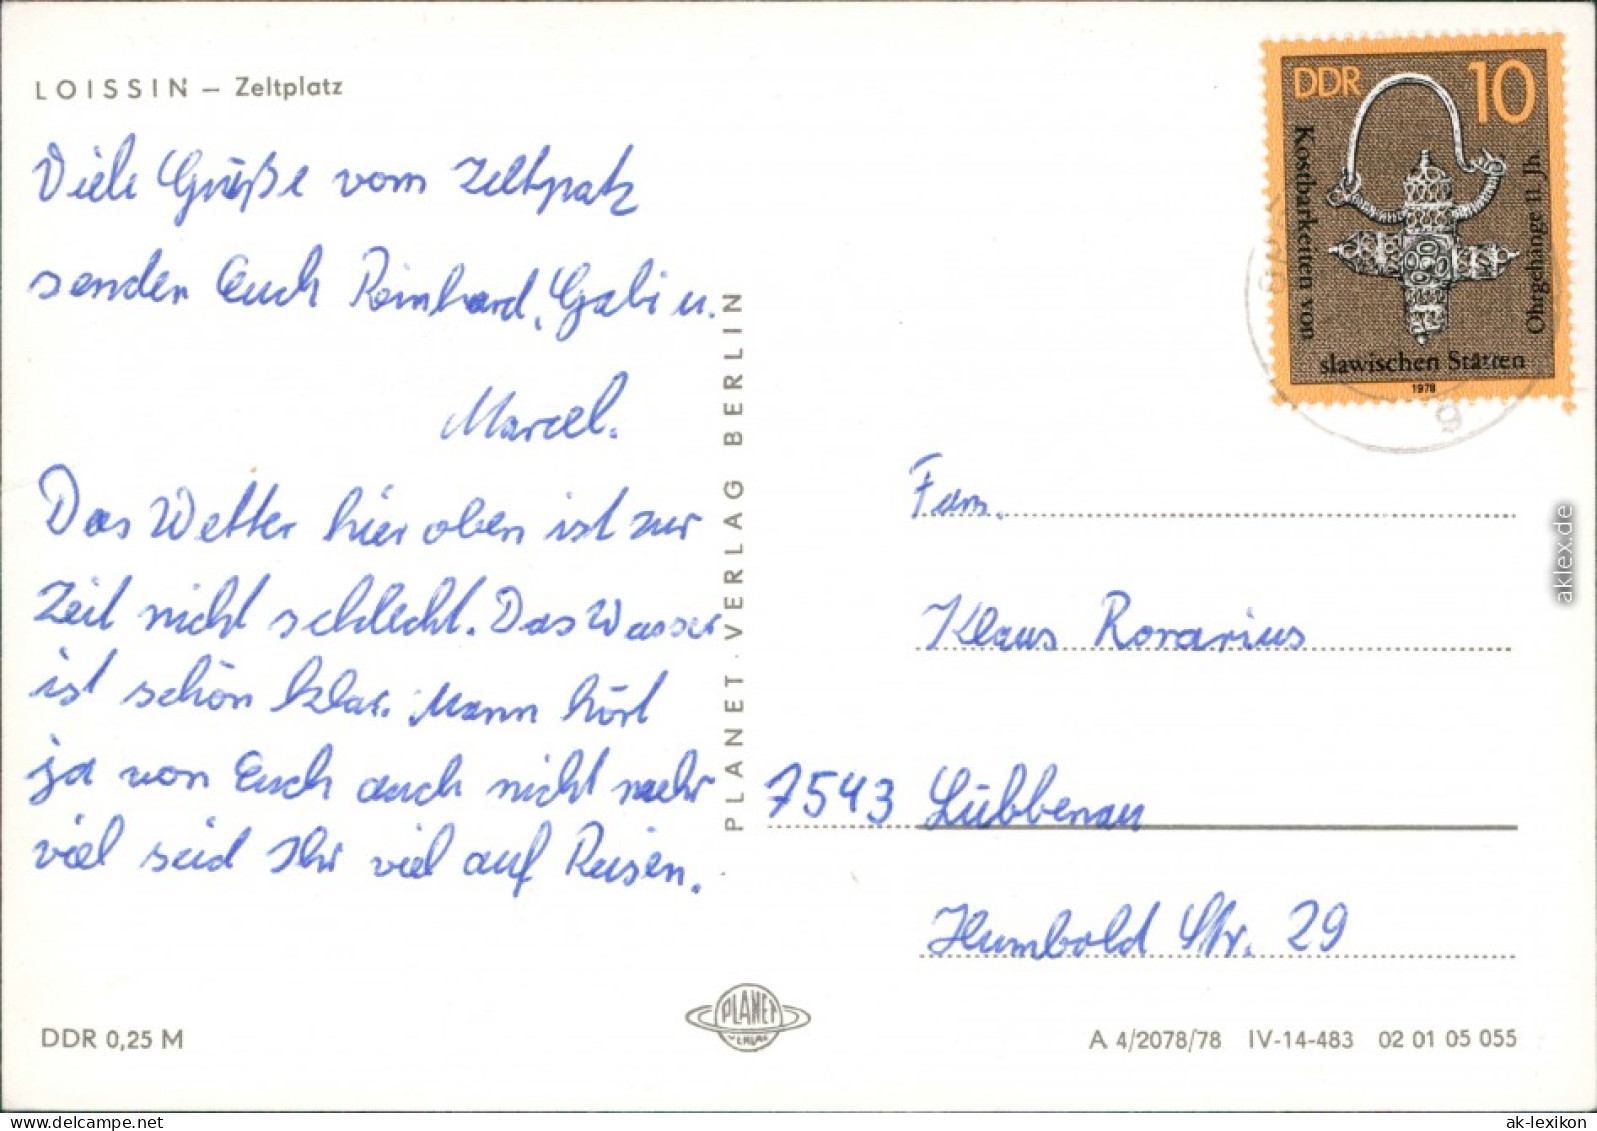 LOISSIN – Zeltplatz
Viele Grüße vom Zeltpatz
senden Euch Reinhard, Gabi u.
Marcel.
Das Wetter hier oben ist zur
Zeit nicht schlecht. Das Wasser
ist schön klar. Mann hört
ja von Euch auch nicht mehr
viel seid Ihr viel auf Reisen.
DDR 0,25 M
PLANET-VERLAG BERLIN
PLANET
VERLAG
DDR 10
Kostbarkeiten von
slawischen Stätten
Ohrgehänge 11. Jh.
1978
Fam.
Klaus Rorarius
7543 Lübbenau
Humbold Str. 29
A 4/2078/78 IV-14-483 02 01 05 055
aklex.de
ak-lexikon